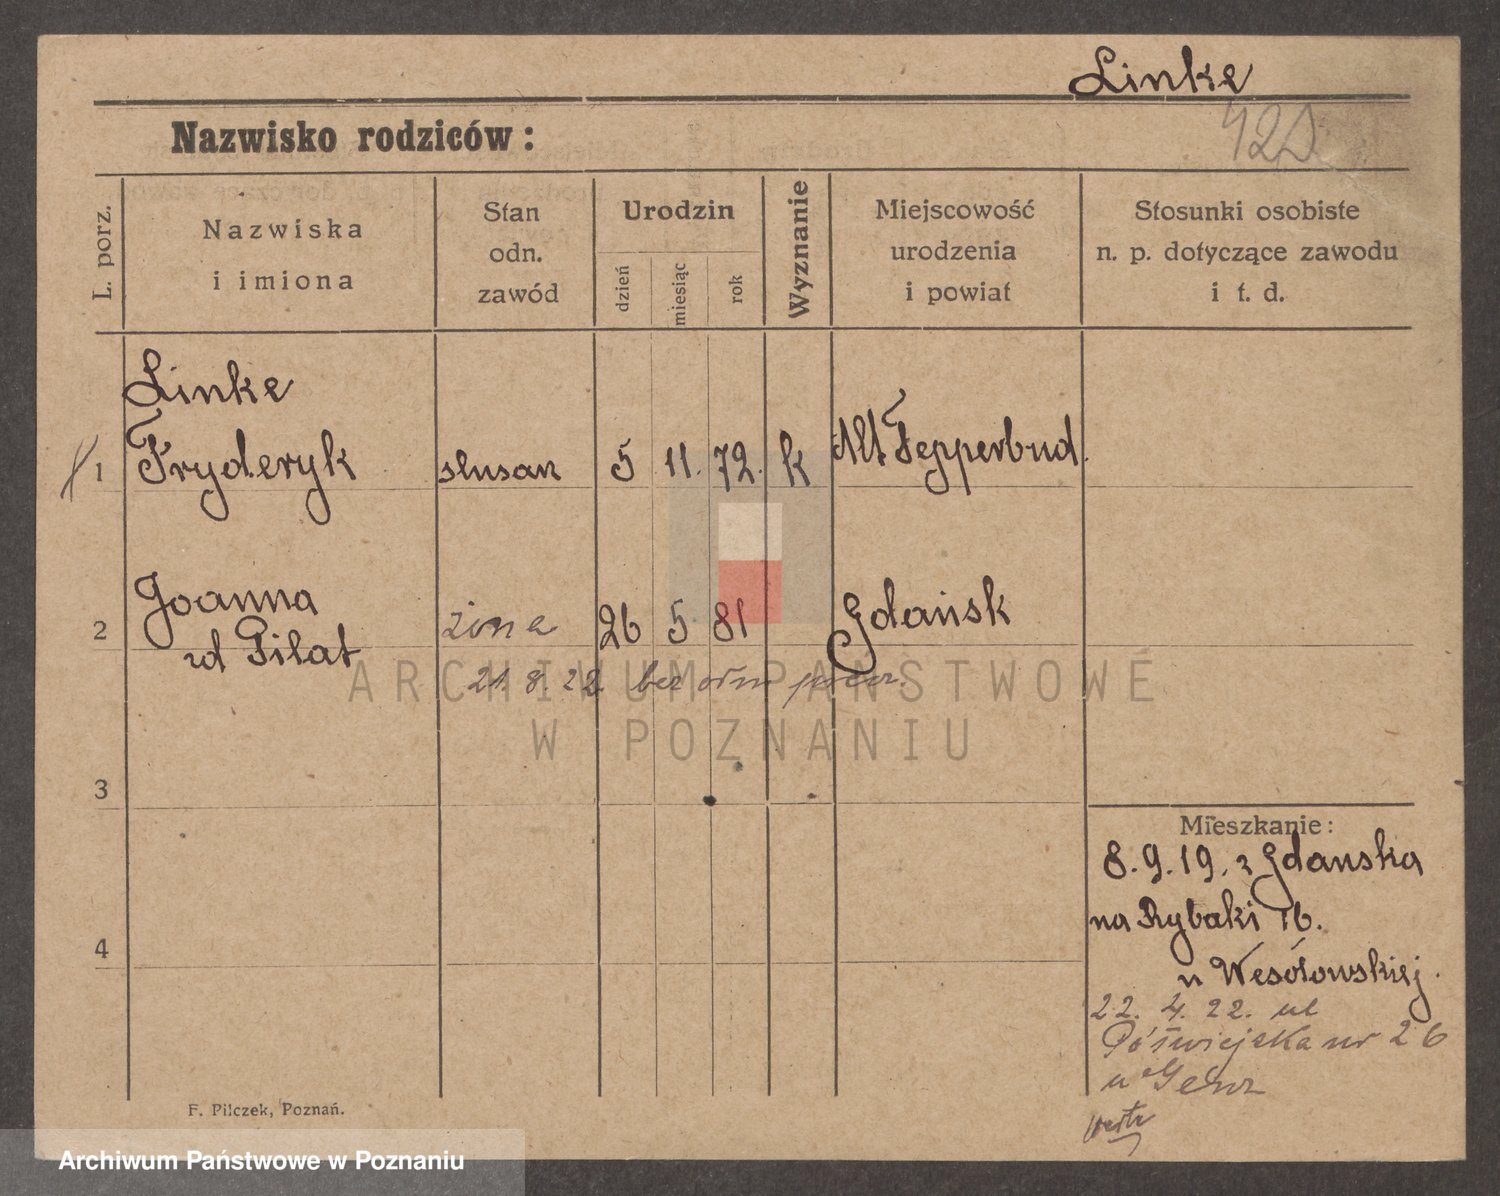 Linke
Nazwisko rodziców:
L. porz.
Nazwiska
i imiona
Stan
odn.
zawód
Urodzin
dzień
miesiąc
rok
Wyznanie
Miejscowość
urodzenia
i powiat
Stosunki osobiste
n. p. dotyczące zawodu
i t. d.
Linke
1 Fryderyk slusarz 5 11. 72. k Alt
Joanna
2 żona 26 5 81 Gdańsk
Pilat
21. 8. 22. bez
ARCHIWUM PAŃSTWOWE
W POZNANIU
3
Mieszkanie:
8. 9. 19. z Gdanska
na Rybaki 16.
4
u Wesołowskiej.
22. 4. 22. ul
Półwiejska nr 26
u
F. Pilczek, Poznań.
Archiwum Państwowe w Poznaniu